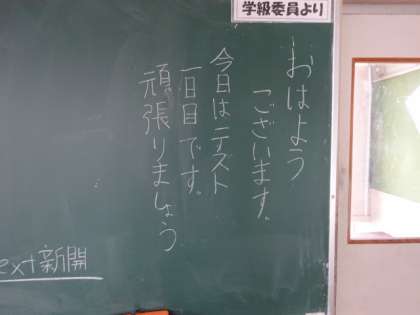 学級委員より
おはよう
ございます。
今日はテスト
一日目です。
頑張りましょう
ext新聞